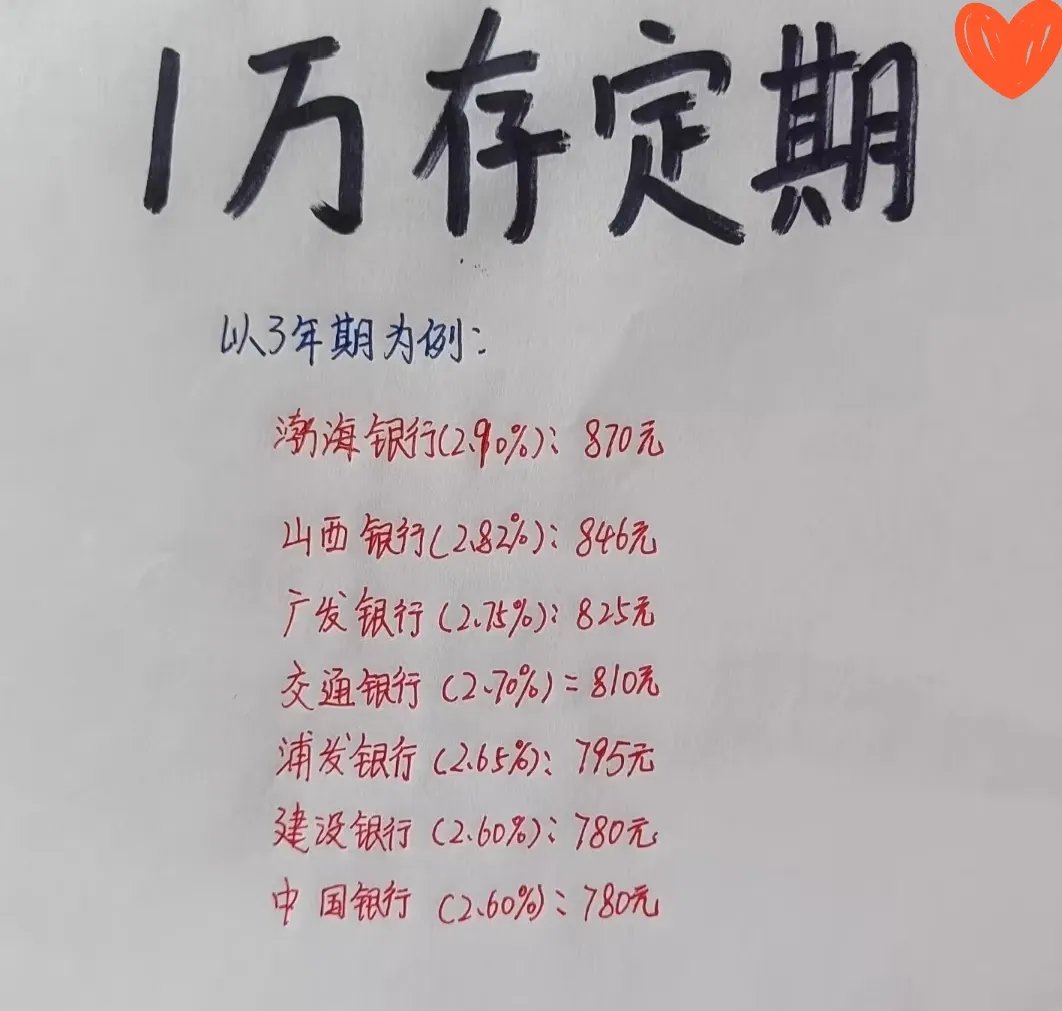 1万存定期
以3年期为例：
渤海银行(2.90%)：870元
山西银行(2.82%)：846元
广发银行(2.75%)：825元
交通银行(2.70%)=810元
浦发银行(2.65%)：795元
建设银行(2.60%)：780元
中国银行(2.60%)：780元